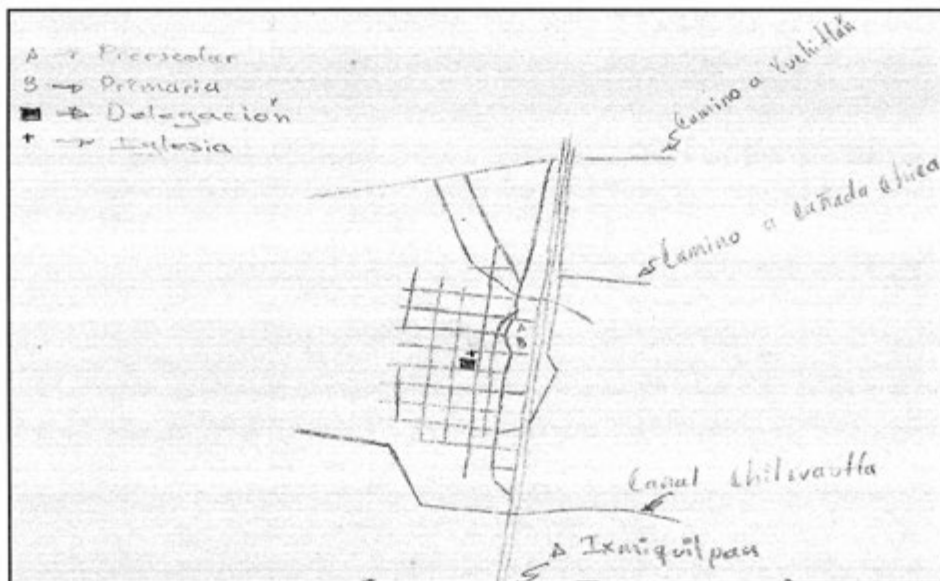 A → Preescolar
B → Primaria
■ → Delegación
+ → Iglesia
Camino a
Camino a Cañada Chica
A
B
Canal
A Ixmiquilpan